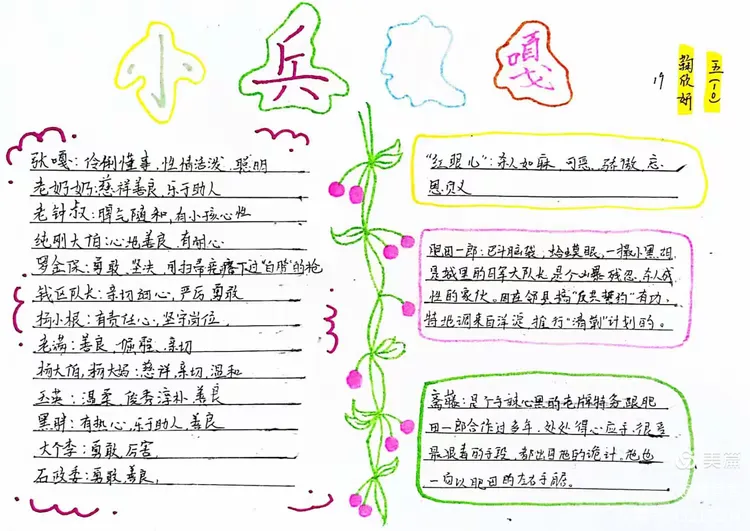 小兵张嘎
五(10)
鞠欣妍
19
张嘎:伶俐懂事,性情活泼,聪明
老奶奶:慈祥善良,乐于助人
老钟叔:脾气随和,有小孩心性
纯刚大伯:心地善良,有耐心
罗金保:勇敢,坚决,用扫帚疙瘩下过"白脖"的枪
钱区队长:亲切细心,严厉勇敢
杨小根:有责任心,坚守岗位,
老满:善良,倔强,亲切
杨大伯,杨大妈:慈祥,亲切,温和
玉英:温柔,俊秀淳朴,善良
黑胖:有热心,乐于助人,善良
大个李:勇敢,厉害,
石政委:勇敢善良,
"红眼儿":杀人如麻,可恶,骄傲,忘
恩负义
肥田一郎:巴斗脑袋,蛤蟆眼,一撮小黑胡
是城里的日军大队长是个凶暴残忍,杀人成
性的家伙。因在邻县搞"反共誓约"有功,
特地调来白洋淀推行"清剿"计划的。
斋藤:是个手辣心黑的老牌特务跟肥
田一郎合作过多年,处处得心应手,很多
最狠毒的手段,都出自他的诡计。他也
一向以肥田的左右手自居。
美篇